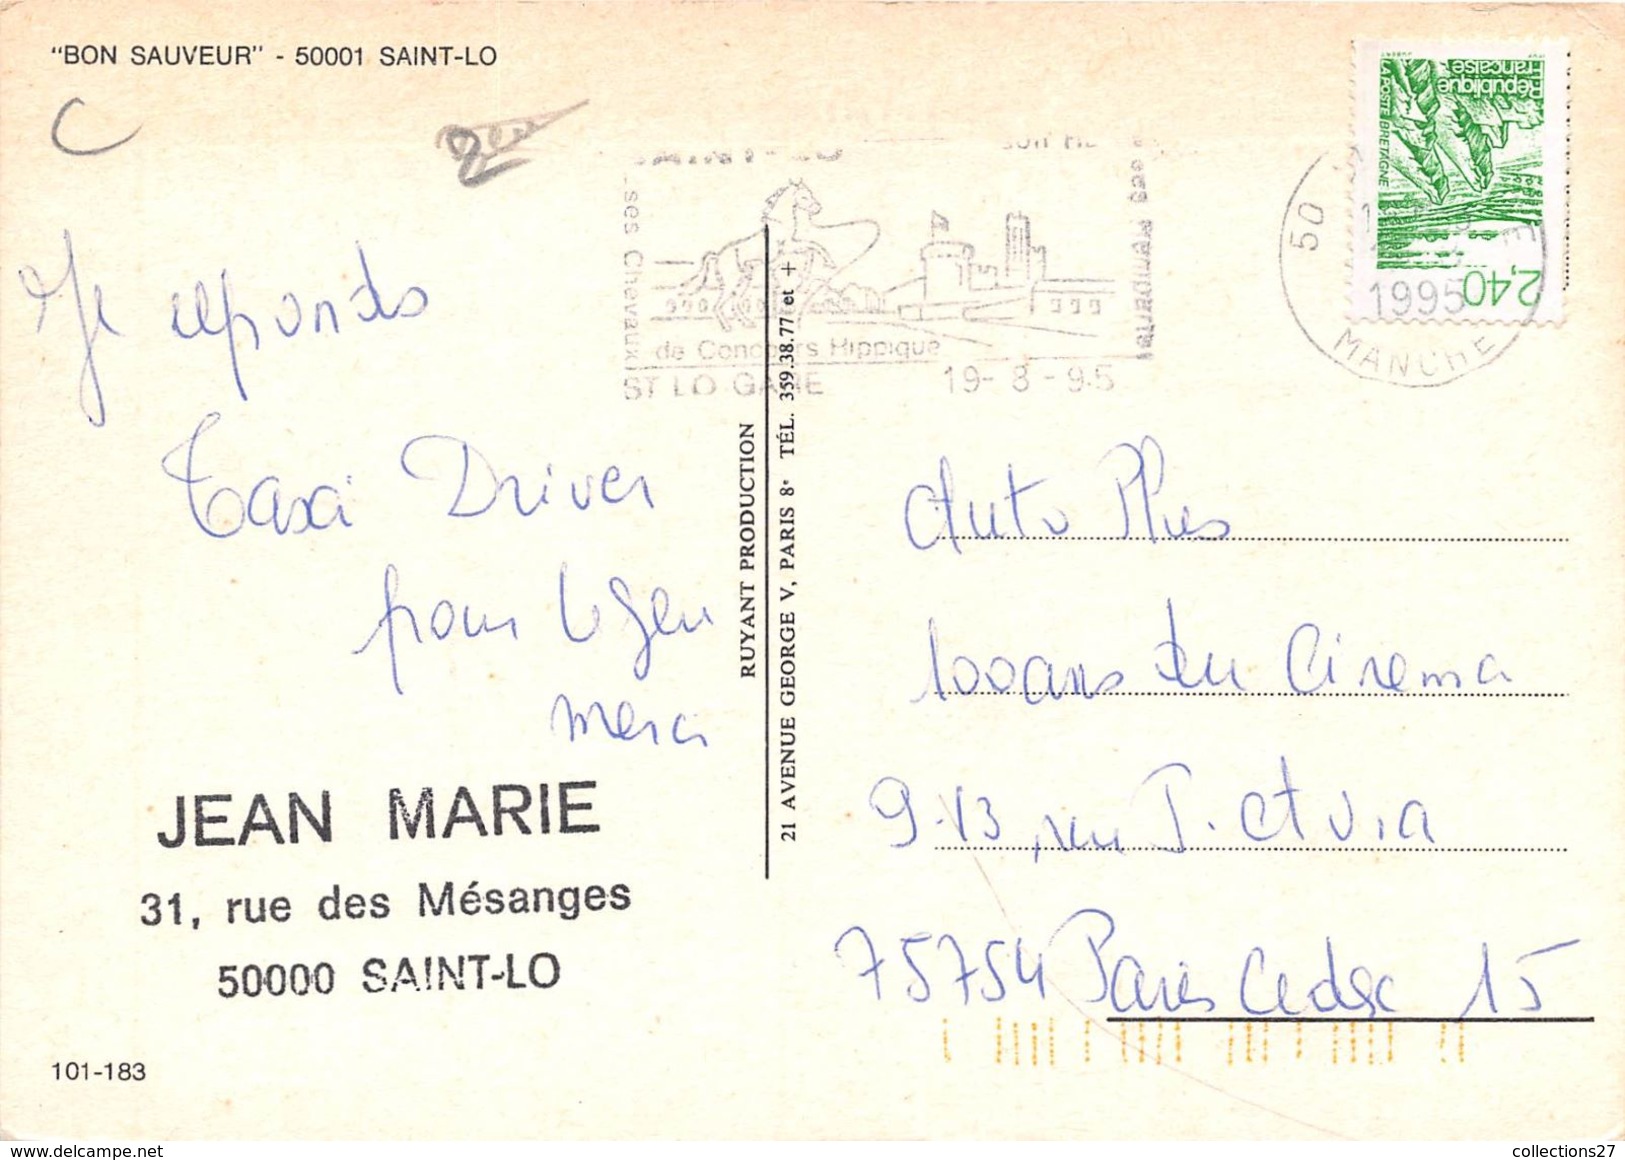 "BON SAUVEUR" - 50001 SAINT-LO
C
SAINT-LO
son Ha
ses Chevaux
de Concours Hippique
ST LO GARE
19- 8 -95
50
1995
MANCHE
République
Française
LA POSTE BRETAGNE
2,40
Je reponds
Taxi Driver
pour
merci
JEAN MARIE
31, rue des Mésanges
50000 SAINT-LO
101-183
RUYANT PRODUCTION
21 AVENUE GEORGE V, PARIS 8e TÉL. 359.38.77 et +
Auto Plus
100 ans du Cinema
9-13, rue
75754 Paris Cedex 15
collections27